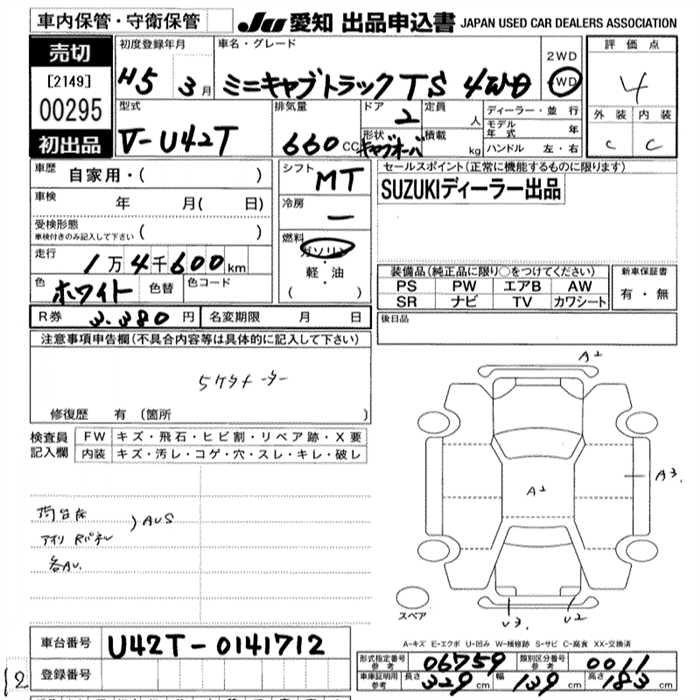 車内保管・守衛保管
JU 愛知 出品申込書 JAPAN USED CAR DEALERS ASSOCIATION
売切
[2149]
00295
初出品
初度登録年月
H5 3月
車名・グレード
ミニキャブトラック TS 4WD
2WD
4WD
評価点
4
外装 内装
C C
型式
V-U42T
排気量
660 CC
ドア
2
形状
キャブオーバ
定員
人
積載
kg
ディーラー・並行
モデル年式 年
ハンドル 左・右
車歴
自家用・( )
車検
年 月( 日)
受検形態
車検付きのみ記入して下さい ( )
走行
1万4千600km
色 ホワイト 色替 色コード
シフト
MT
冷房
ー
燃料
ガソリン
軽・油
( )
セールスポイント(正常に機能するものに限ります)
SUZUKIディーラー出品
装備品(純正品に限り○をつけてください)
PS PW エアB AW
SR ナビ TV カワシート
新車保証書
有・無
後日品
R券 3.380円 名変期限 月 日
注意事項申告欄(不具合内容等は具体的に記入して下さい)
修復歴 有 (箇所 )
検査員記入欄
FW キズ・飛石・ヒビ割・リペア跡・X要
内装 キズ・汚レ・コゲ・穴・スレ・キレ・破レ
AUS
A2
A2
A3
U3 U2
スペア
A-キズ E-エクボ U-凹み W-補修跡 S-サビ C-腐食 XX-交換済
車台番号 U42T-0141712
登録番号
形式指定番号 参考 06759 類別区分番号 参考 0011
車庫証明用 参考 長さ 329cm 幅 139cm 高さ 183cm